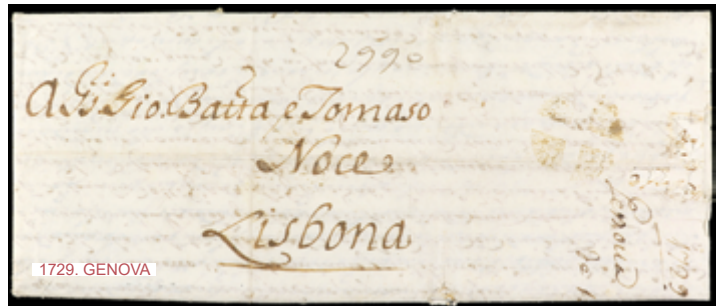 2990
A Gi: Ss. Gio. Batta e Tomaso
Noce
Lisbona
1729. GENOVA
1729
Genova